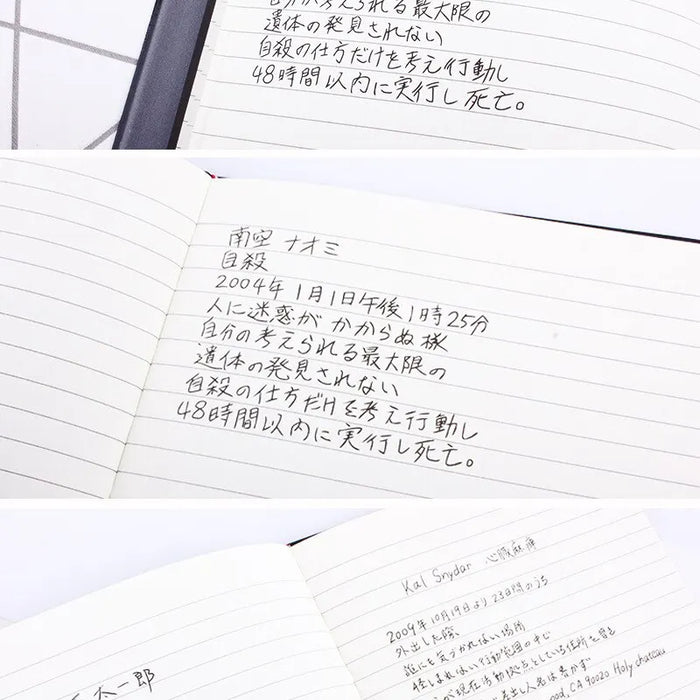 自殺の仕方だけを考え行動し
48時間以内に実行し死亡。
遺体の発見されない
南空 ナオミ
自殺
2004年1月1日午後1時25分
人に迷惑がかからぬ様
自分の考えられる最大限の
遺体の発見されない
自殺の仕方だけを考え行動し
48時間以内に実行し死亡。
Kal Snydar 心臓麻痺
2009年10月19日より23日間のうち
外出した際
誰にも気づかれない場所
太一郎
CA 90020 Holy chateau